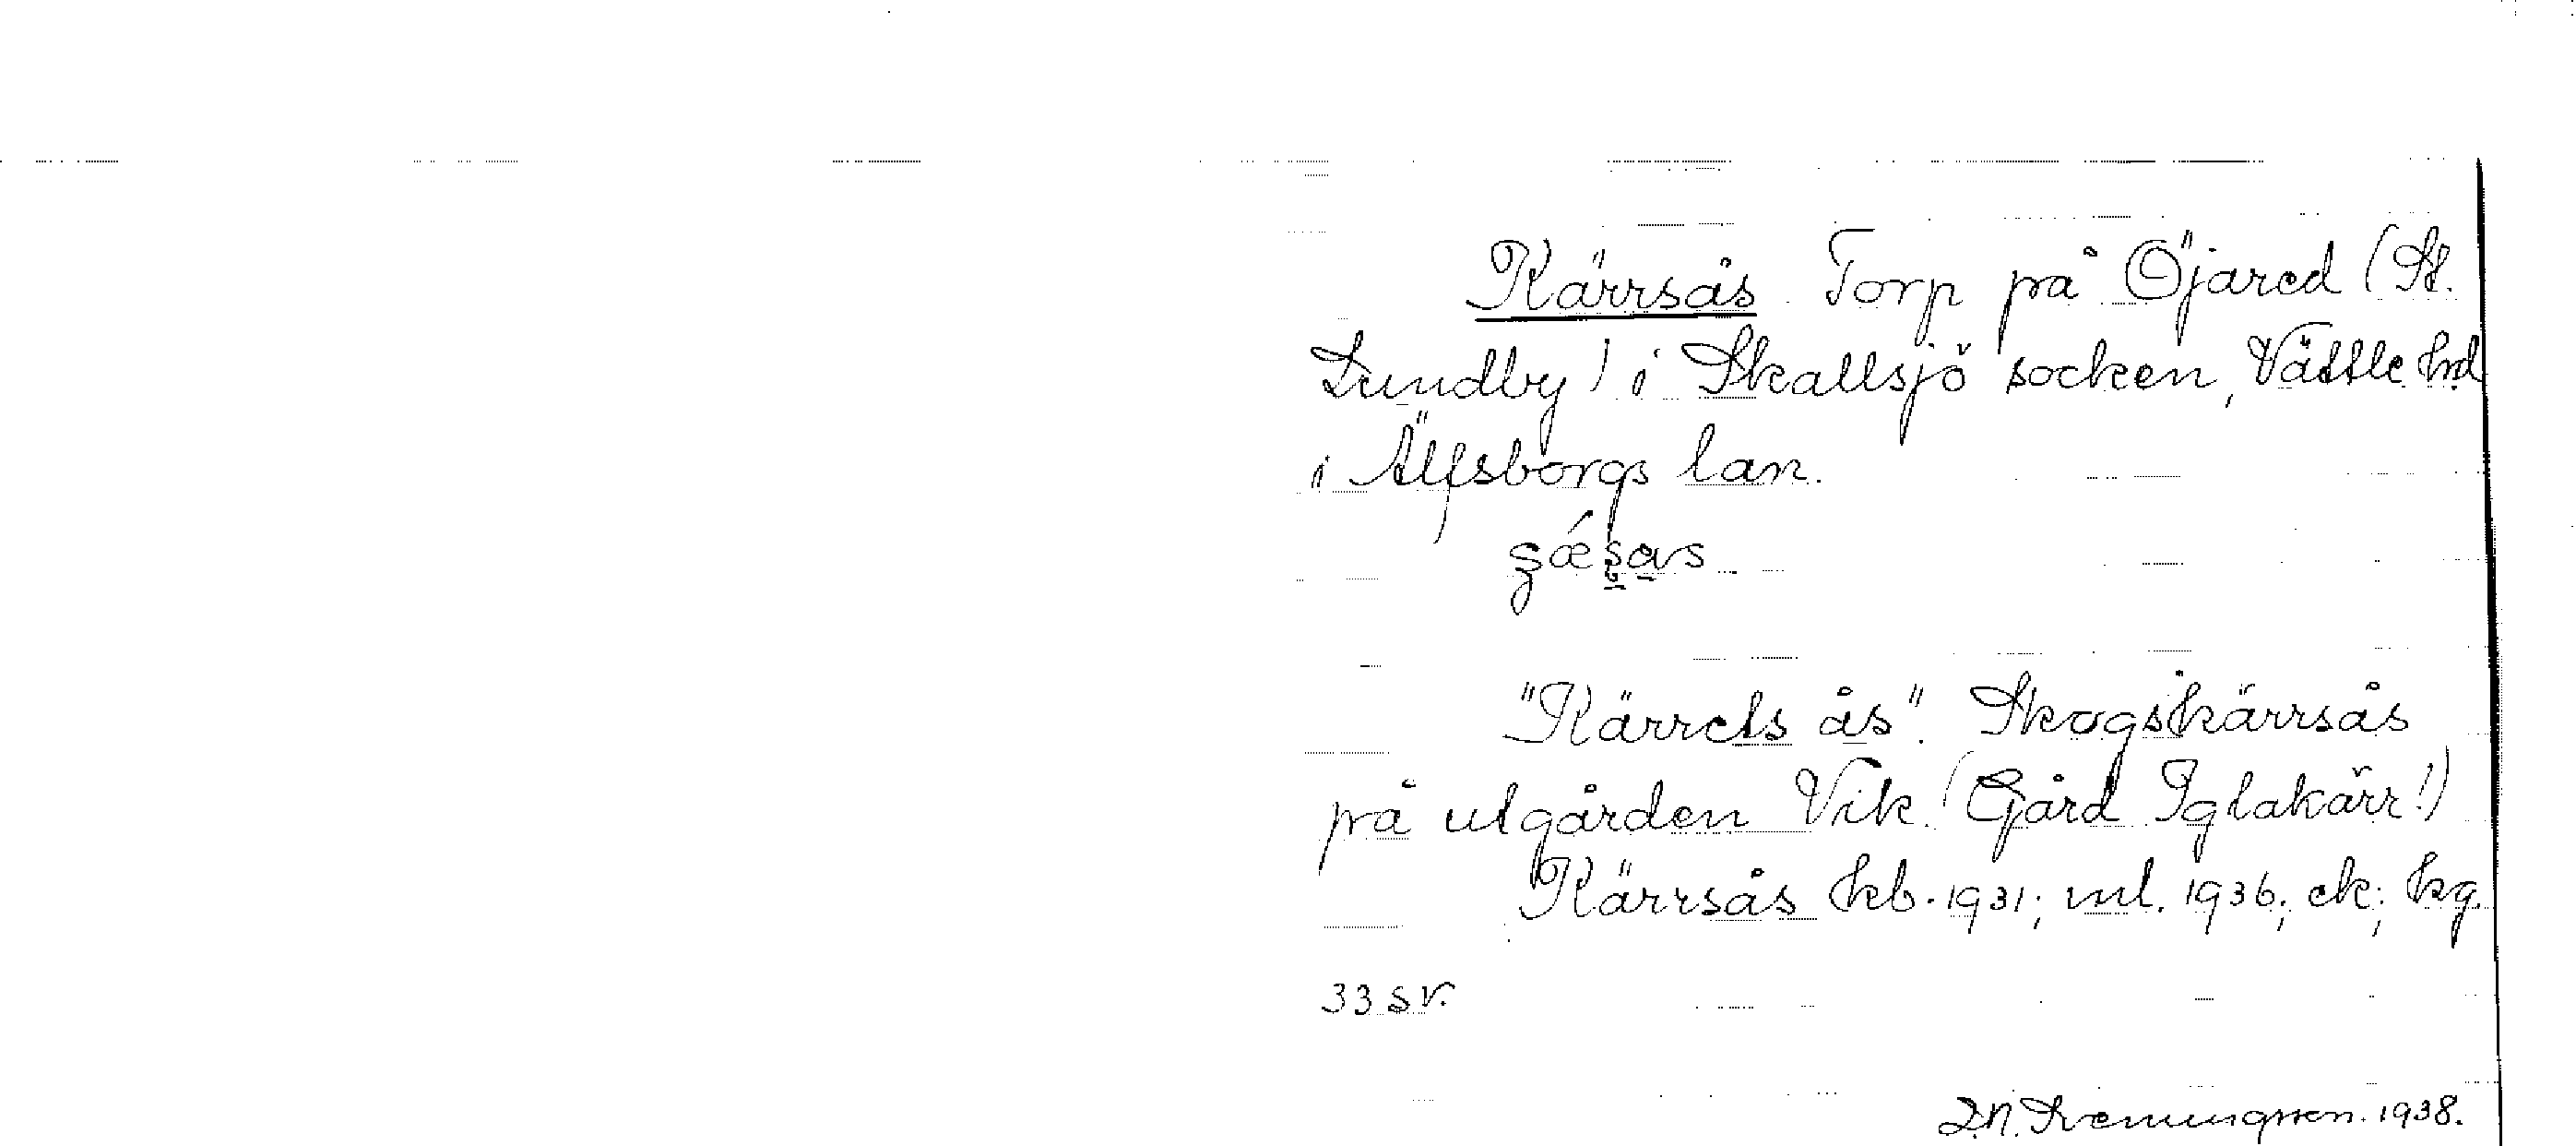 Kärrsås. Torp på Öjared (St.
Lundby) i Skallsjö socken, Vättle hd
i Älfsborgs län.
"Kärrets ås". Skogskärrsås
på utgården Vik. (Gård Iglakärr!)
Kärrsås kb. 1931; ml. 1936; ek; kg.
33 sv.
1938.